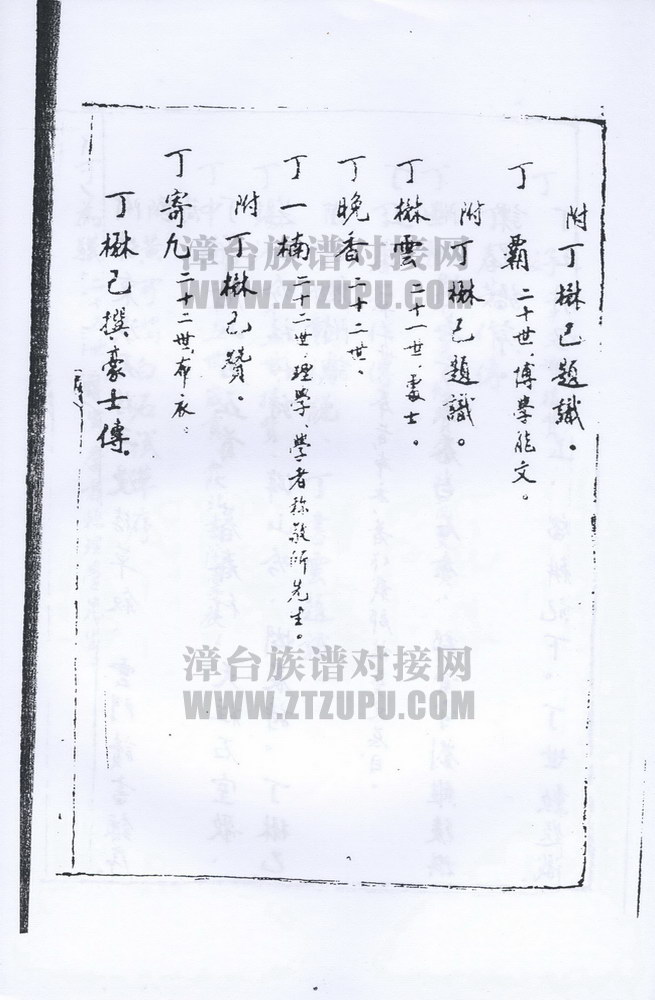 附丁楙已題識。
丁霸二十世、博學能文。
附丁楙已題識。
丁楙雲二十一世、處士。
丁晚香二十二世。
丁一楠二十二世、理學、學者称敬所先生。
附丁楙已贊。
丁寄九二十二世、布衣、
丁楙已撰、豪士傳。
漳台族谱对接网
WWW.ZTZUPU.COM
漳台族谱对接网
WWW.ZTZUPU.COM